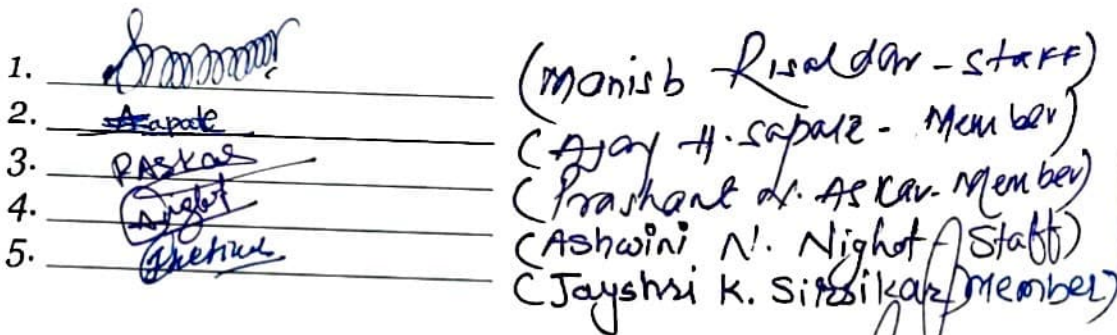 1. (Manish Risaldar - Staff)
2. Aapate (Ajay H. Sapate - Member)
3. PASKAR (Prashant N. Askar - Member)
4. Nighot (Ashwini N. Nighot - Staff)
5. (Jayshri K. Sirsikar Member)